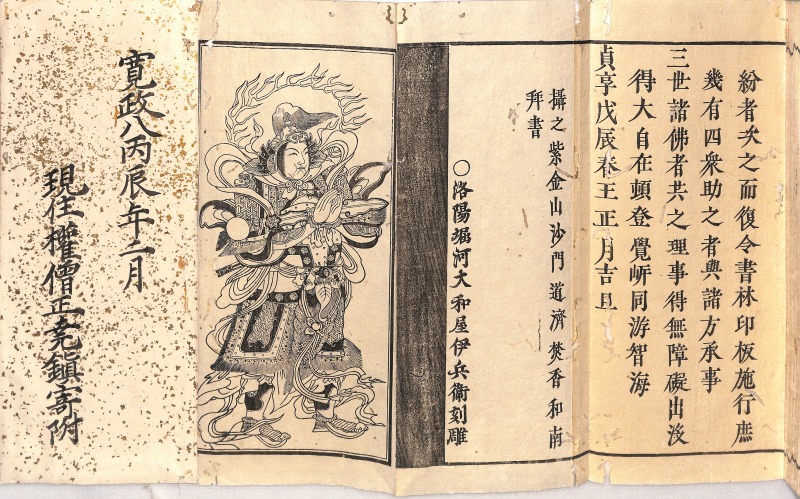 紛者夾之而復令書林印板施行庶
幾有四衆助之者與諸方承事
三世諸佛者共之理事得無障礙出沒
得大自在頓登覺岍同游智海
貞享戊辰春王正月吉旦
攝之紫金山沙門道濟焚香和南
拜書
○洛陽堀河大和屋伊兵衞刻雕
寛政八丙辰年二月
現住權僧正堯鎭寄附